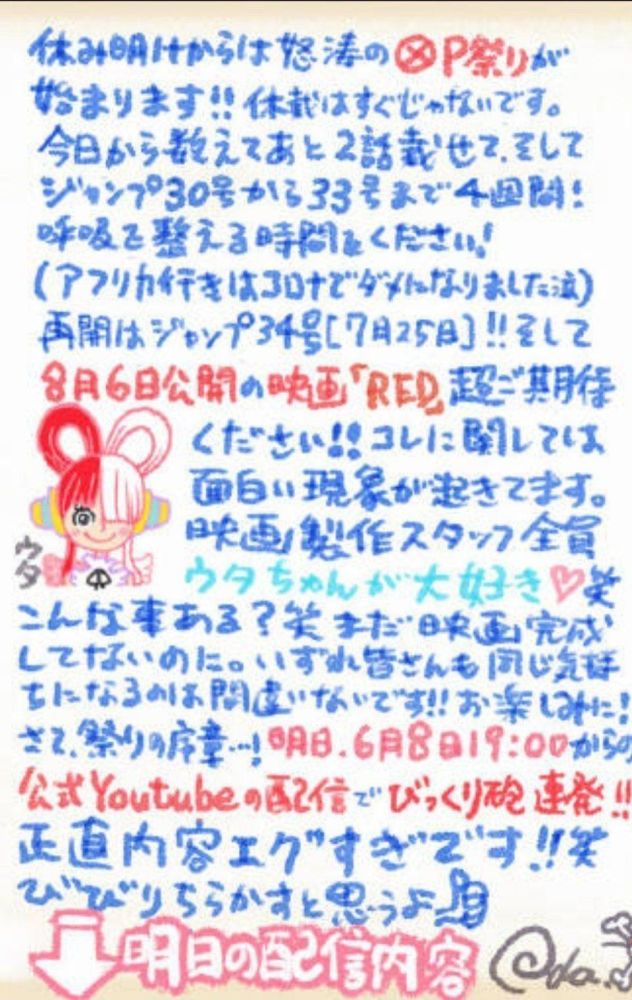 休み明けからは怒涛のⓍP祭りが
始まります!!休載はすぐじゃないです。
今日から数えてあと2話載せて、そして
ジャンプ30号から33号まで4週間!
呼吸を整える時間をください!
(アフリカ行きはコロナでダメになりました泣)
再開はジャンプ34号[7月25日]!!そして
8月6日公開の映画「RED」超ご期待
ください!!コレに関しては
面白い現象が起きてます。
映画製作スタッフ全員
ウタ
ウタちゃんが大好き♡笑
こんな事ある?笑 まだ映画完成
してないのに。いずれ皆さんも同じ気持
ちになるのは間違いないです!!お楽しみに!
さて、祭りの序章…!明日、6月8日19:00からの
公式Youtubeの配信でびっくり砲連発!!
正直内容エグすぎです!!笑
びびりちらかすと思うよ
明日の配信内容
Oda.